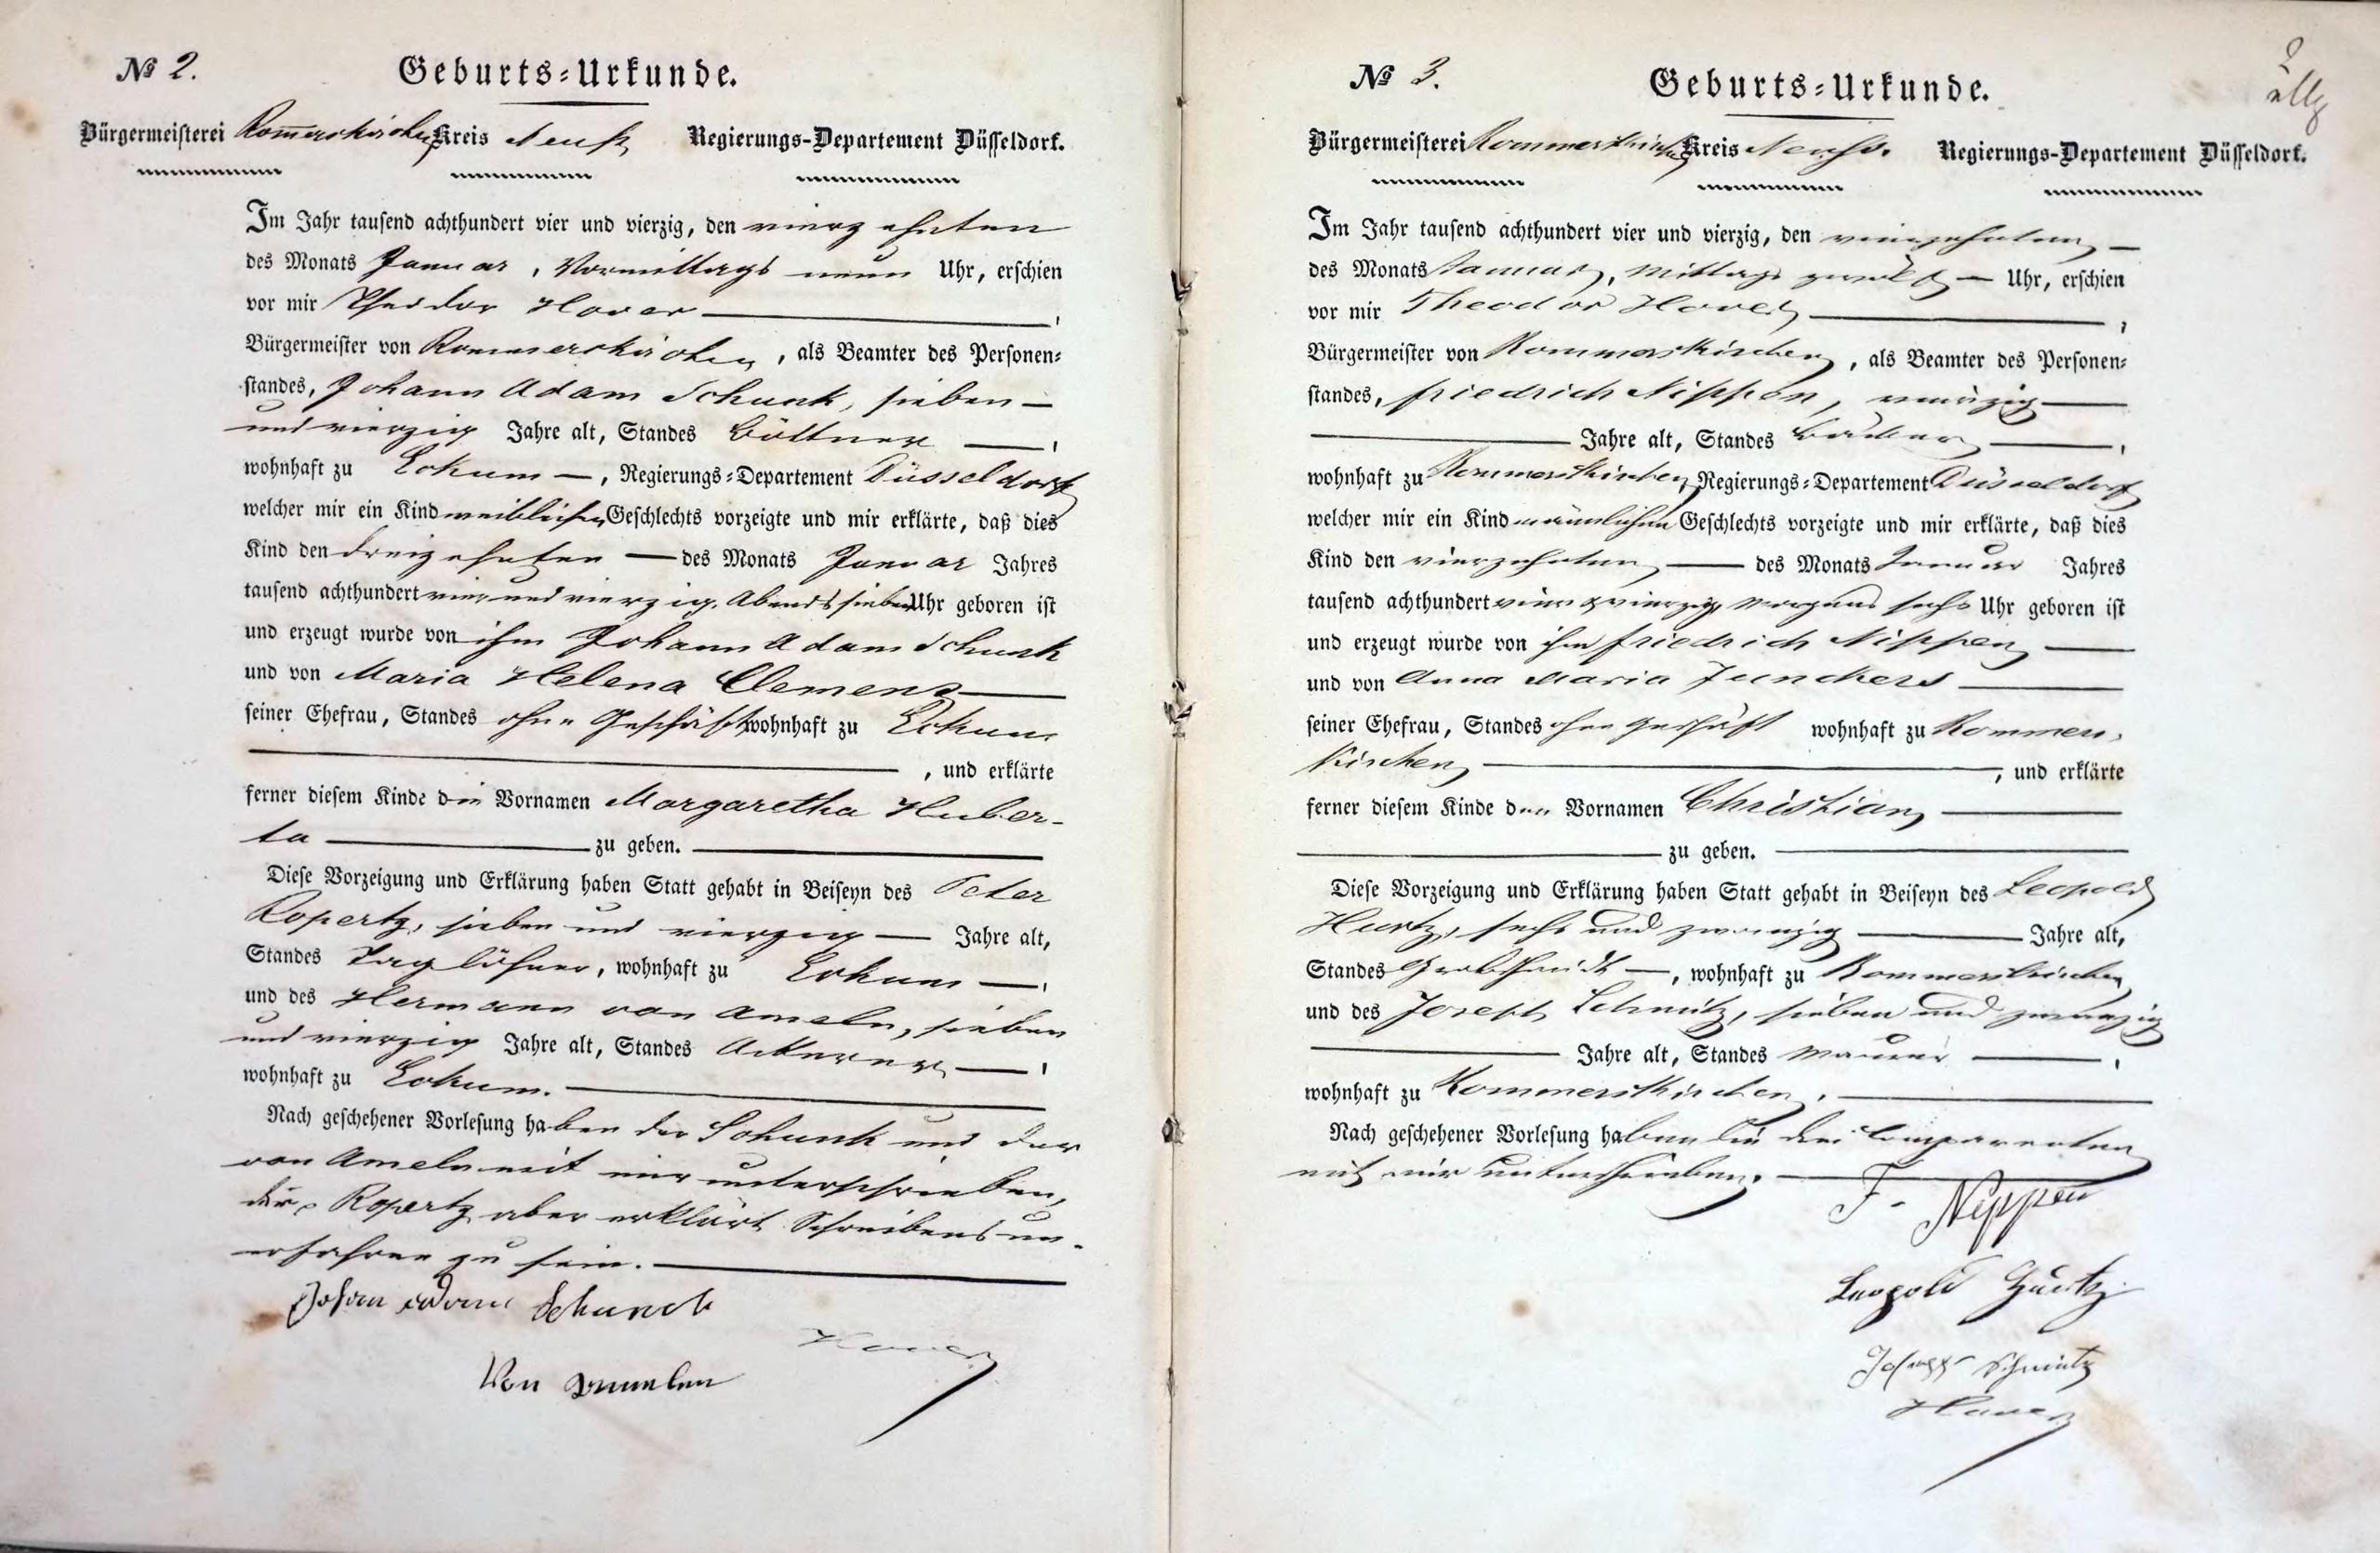 № 2.
Geburts-Urkunde.
Bürgermeisterei Rommerskirchen Kreis Neuß Regierungs-Departement Düsseldorf.
Im Jahr tausend achthundert vier und vierzig, den vierzehnten
des Monats Januar, Vormittags neun Uhr, erschien
vor mir Theodor Hover,
Bürgermeister von Rommerskirchen, als Beamter des Personen-
standes, Johann Adam Schunk, sieben
und vierzig Jahre alt, Standes Böttner,
wohnhaft zu Eckum, Regierungs-Departement Düsseldorf
welcher mir ein Kind weiblichen Geschlechts vorzeigte und mir erklärte, daß dies
Kind den dreizehnten des Monats Januar Jahres
tausend achthundert vier und vierzig, Abends sieben Uhr geboren ist
und erzeugt wurde von ihm Johann Adam Schunk
und von Maria Helena Clemens
seiner Ehefrau, Standes ohne Geschäft wohnhaft zu Eckum
, und erklärte
ferner diesem Kinde die Vornamen Margaretha Huber-
ta zu geben.
Diese Vorzeigung und Erklärung haben Statt gehabt in Beiseyn des Peter
Ropertz, sieben und vierzig Jahre alt,
Standes Taglöhner, wohnhaft zu Eckum,
und des Hermann van Ameln, sieben
und vierzig Jahre alt, Standes Ackerer,
wohnhaft zu Eckum.
Nach geschehener Vorlesung haben der Schunk und der
van Ameln mit mir unterschrieben,
der Ropertz aber erklärt Schreibens un-
erfahren zu sein.
Johan Adam Schunck
Hover
Von Ammelen
№ 3.
Geburts-Urkunde.
2
Bürgermeisterei Rommerskirchen Kreis Neuss. Regierungs-Departement Düsseldorf.
Im Jahr tausend achthundert vier und vierzig, den vierzehnten
des Monats Januar, Mittags zwölf Uhr, erschien
vor mir Theodor Hover,
Bürgermeister von Rommerskirchen, als Beamter des Personen-
standes, Friedrich Nippen, vierzig
Jahre alt, Standes Bäcker,
wohnhaft zu Rommerskirchen, Regierungs-Departement Düsseldorf
welcher mir ein Kind männlichen Geschlechts vorzeigte und mir erklärte, daß dies
Kind den vierzehnten des Monats Januar Jahres
tausend achthundert vier & vierzig Morgens sechs Uhr geboren ist
und erzeugt wurde von ihm Friedrich Nippen
und von Anna Maria Junckers
seiner Ehefrau, Standes ohne Geschäft wohnhaft zu Rommers-
kirchen, und erklärte
ferner diesem Kinde den Vornamen Christian
zu geben.
Diese Vorzeigung und Erklärung haben Statt gehabt in Beiseyn des Leopold
Huertz, sechs und zwanzig Jahre alt,
Standes Grobschmidt, wohnhaft zu Rommerskirchen
und des Joseph Schmitz, sieben und zwanzig
Jahre alt, Standes Maurer,
wohnhaft zu Rommerskirchen.
Nach geschehener Vorlesung haben die drei Comparenten
mit mir unterschrieben.
F. Nippen
Leopold Huertz
Joseph Schmitz
Hover